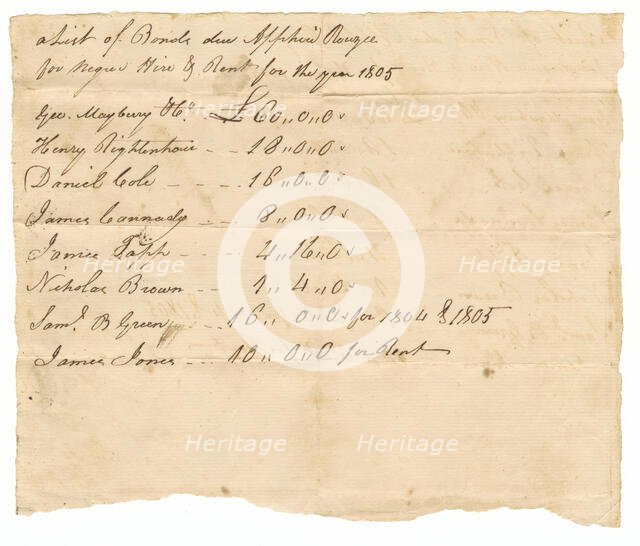 a List of Bonds due Apphia Rouzee
for Negro Hire & Rent for the year 1805
Geo. Maybury & Co. £60,,0,,0s
Henry Rightenhour - - 18,,0,,0s
Daniel Cole - - - 16,,0,,0s
James Cannady - - 8,,0,,0s
James Tapp - - 4,,16,,0s
Nicholas Brown - - 1,,4,,0s
Saml. B Green - 16,, 0,,0s for 1804 & 1805
James Jones - - - 10,,0,,0 for Rent
Heritage Heritage Heritage
Heritage Heritage Heritage